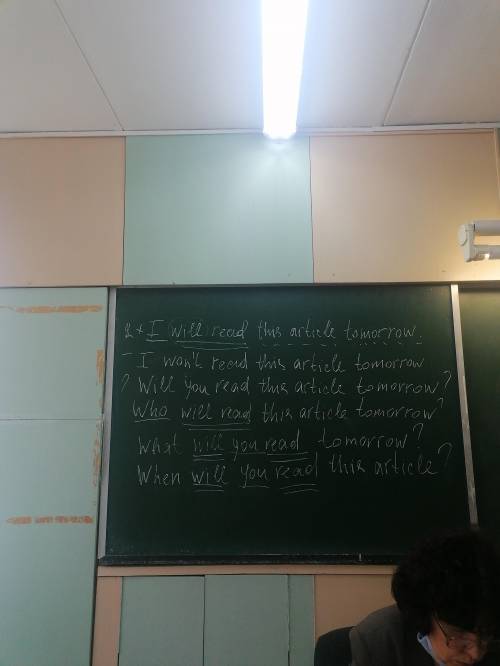 2 + I will read this article tomorrow.
- I won't read this article tomorrow
? Will you read this article tomorrow?
Who will read this article tomorrow?
What will you read tomorrow?
When will you read this article?